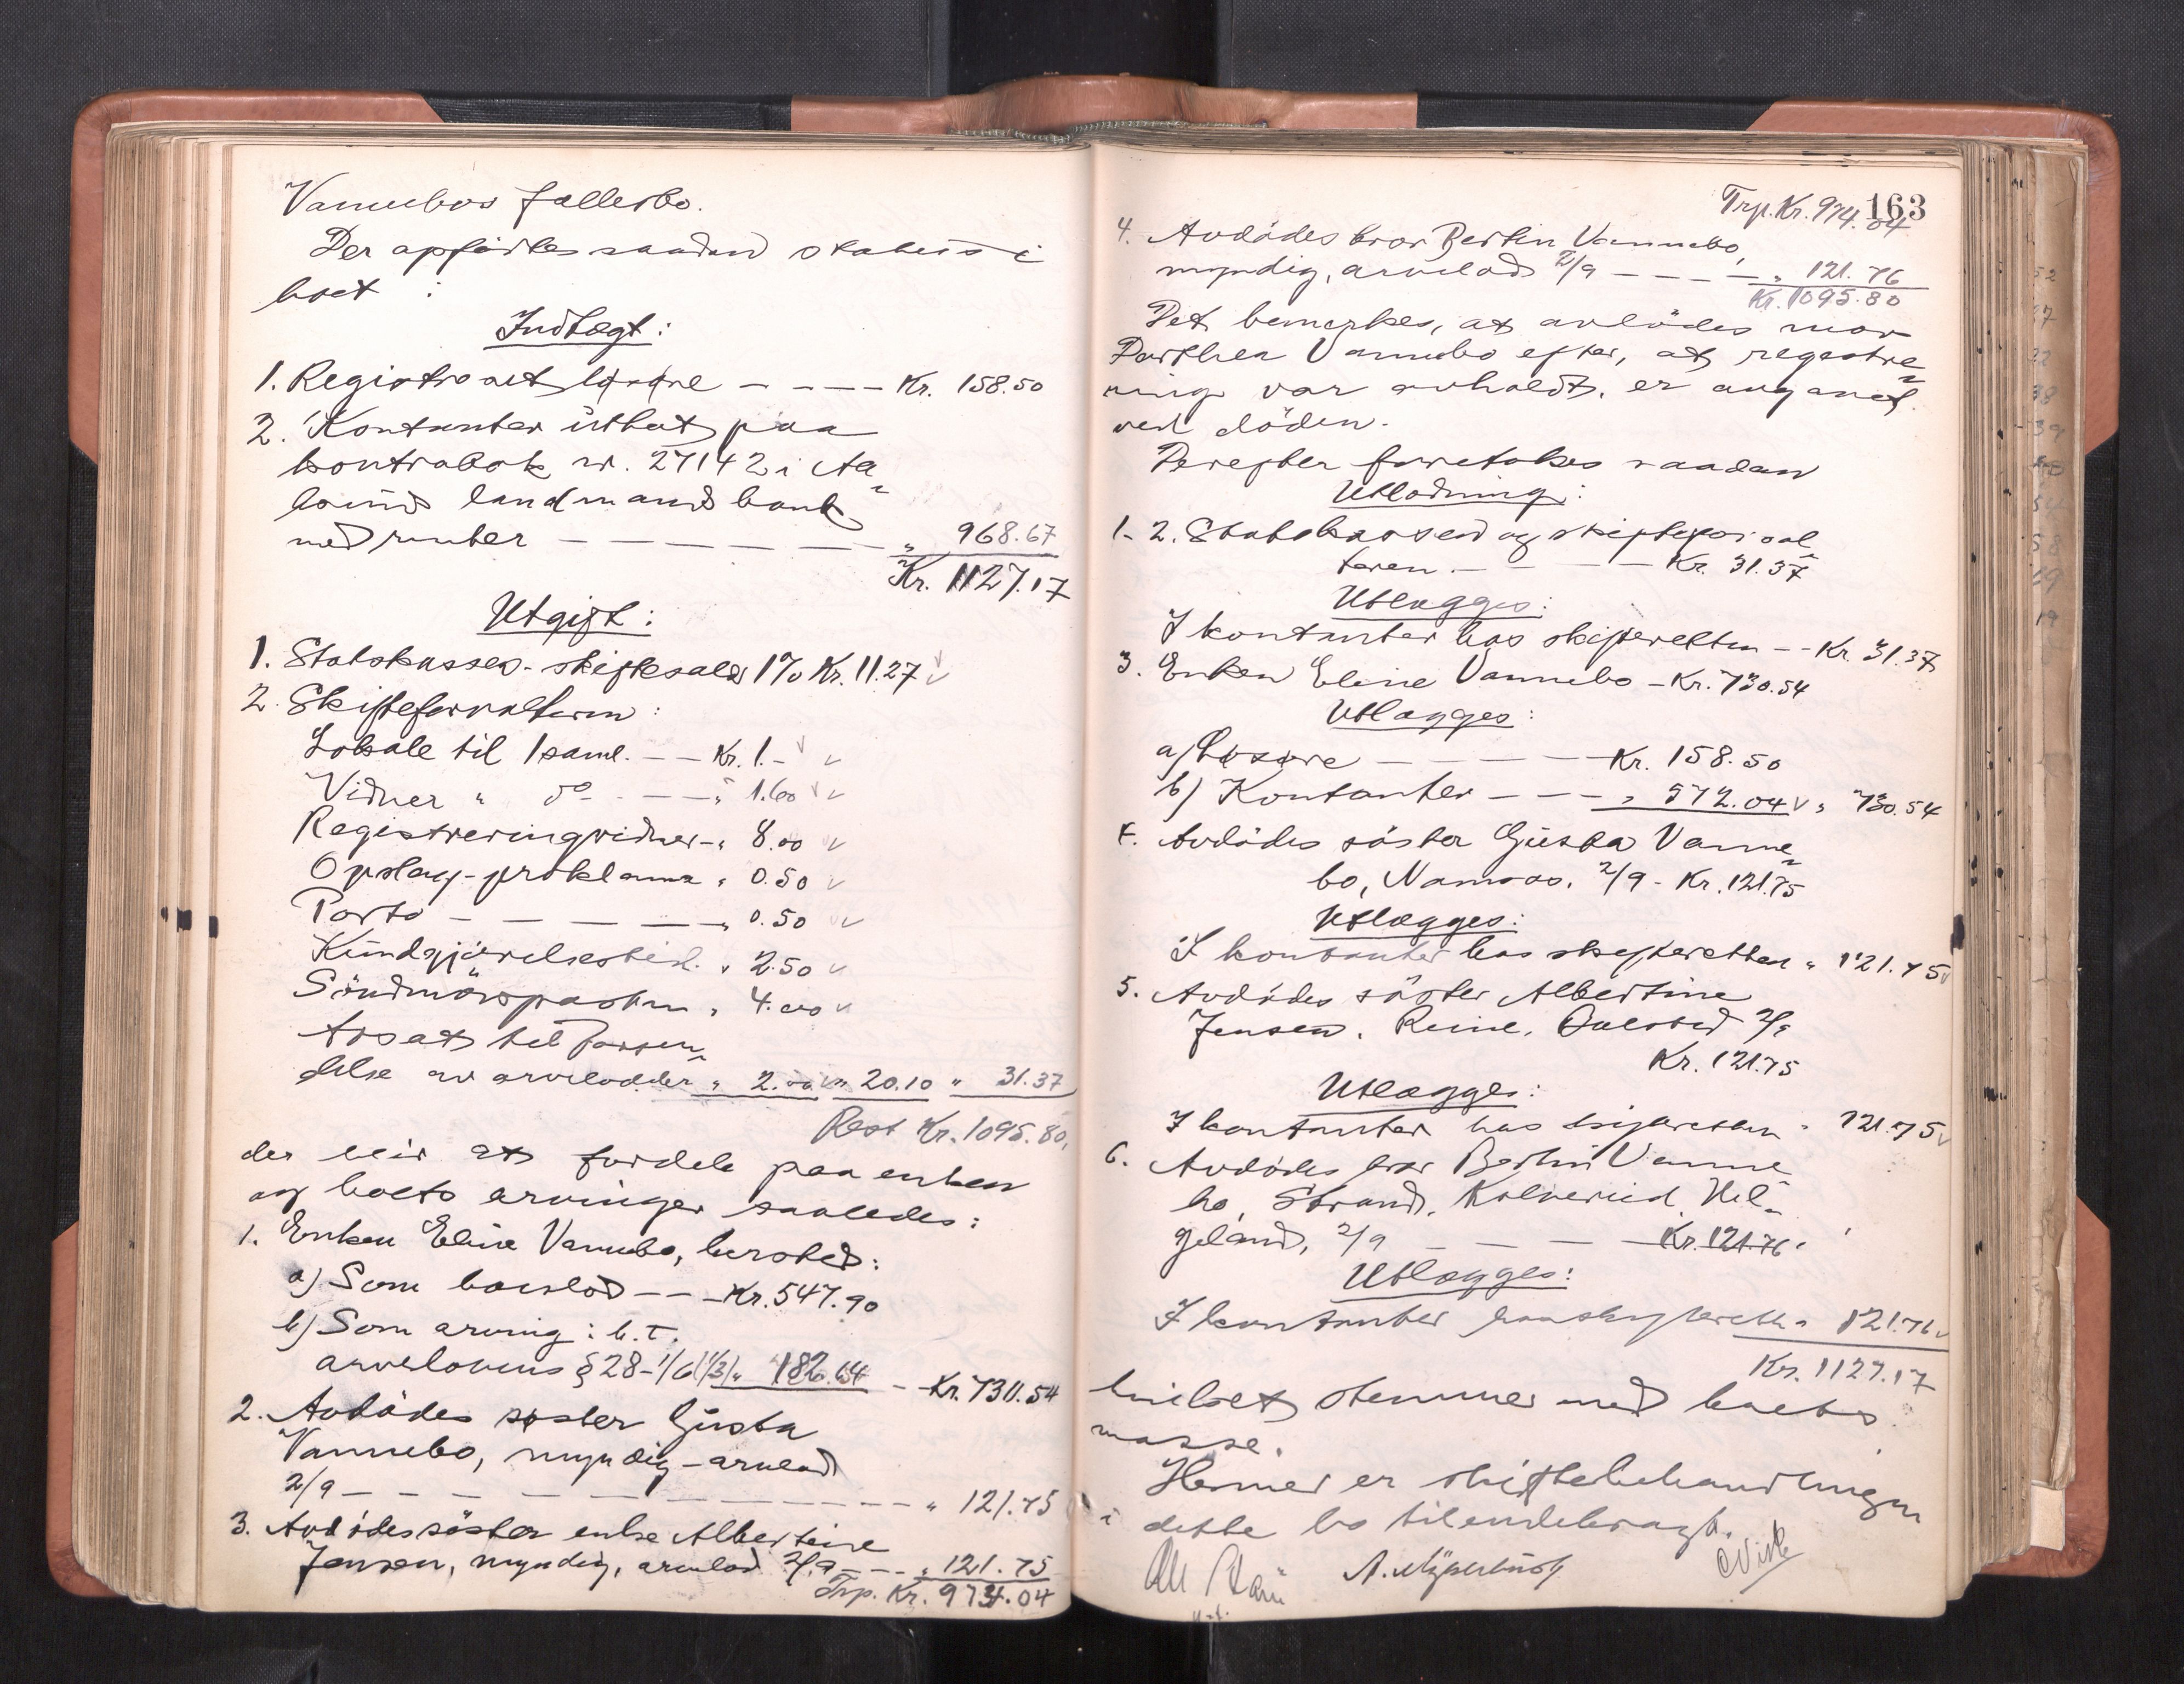 Vannebos fællesbo.
Der opførtes saadan status i
boet :
Indtægt :
1. Registreret løsøre - - - - Kr. 158.50
2. Kontanter uthævet paa
kontrabok nr. 27142 i Aa-
lesunds landmandsbank
med renter - - - - - - „ 968.67
Kr. 1127.17
Utgift :
1. Statskassen - skiftesalær 1% Kr. 11.27
2. Skifteforvalteren :
Lokale til 1 saml. - - Kr. 1.-
Vidner „ do - - - „ 1.60
Registreringsvidner - „ 8.00
Opslag - proklama „ 0.50
Porto - - - - - „ 0.50
Kundgjørelsestid. „ 2.50
Söndmörsposten „ 4.00
Avsat til forsen-
delse av arvelodder „ 2.00 „ 20.10 „ 31.37
Rest Kr. 1095.80,
der blir at fordele paa enken
og boets arvinger saaledes :
1. Enken Eline Vannebo, hersted :
a) Som boeslod - - - Kr. 547.90
b) Som arving : h.t.
arvelovens § 28 - 1/6 (1/3) „ 182.64 - Kr. 730.54
2. Avdødes søster Gusta
Vannebo, myndig - arvelod
2/9 - - - - - - - - - - - „ 121.75
3. Avdødes søster enke Albertine
Jensen, myndig, arvelod 2/9 - - - „ 121.75
Trp. Kr. 974.04
163
Trp. Kr. 974.04
4. Avdødes bror Bertin Vannebo,
myndig, arvelod 2/9 - - - - „ 121.76
Kr. 1095.80
Det bemerkes, at avdødes mor
Dorthea Vannebo efter, at registre-
ring var avholdt, er avgaaet
ved døden.
Derefter foretokes saadan
Utlodning :
1-2. Statskassen og skifteforval-
teren - - - - Kr. 31.37
Utlægges :
I kontanter hos skifteretten - - Kr. 31.37
3. Enken Eline Vannebo - Kr. 730.54
Utlægges :
a) Løsøre - - - - - Kr. 158.50
b) Kontanter - - - „ 572.04 „ 730.54
4. Avdødes søster Gusta Vanne-
bo, Namsos. 2/9 - Kr. 121.75
Utlægges :
I kontanter hos skifteretten „ 121.75
5. Avdødes søster Albertine
Jensen, Reine, 2/9
Kr. 121.75
Utlægges :
I kontanter hos skifteretten „ 121.75
6. Avdødes bror Bertin Vanne-
bo, Strand, Kolvereid, Hel-
geland, 2/9 - - - - Kr. 121.76
Utlægges :
I kontanter hos skifteretten „ 121.76
Kr. 1127.17
hvilket stemmer med boets
masse.
Hermed er skiftebehandlingen
i dette bo tilendebragt.